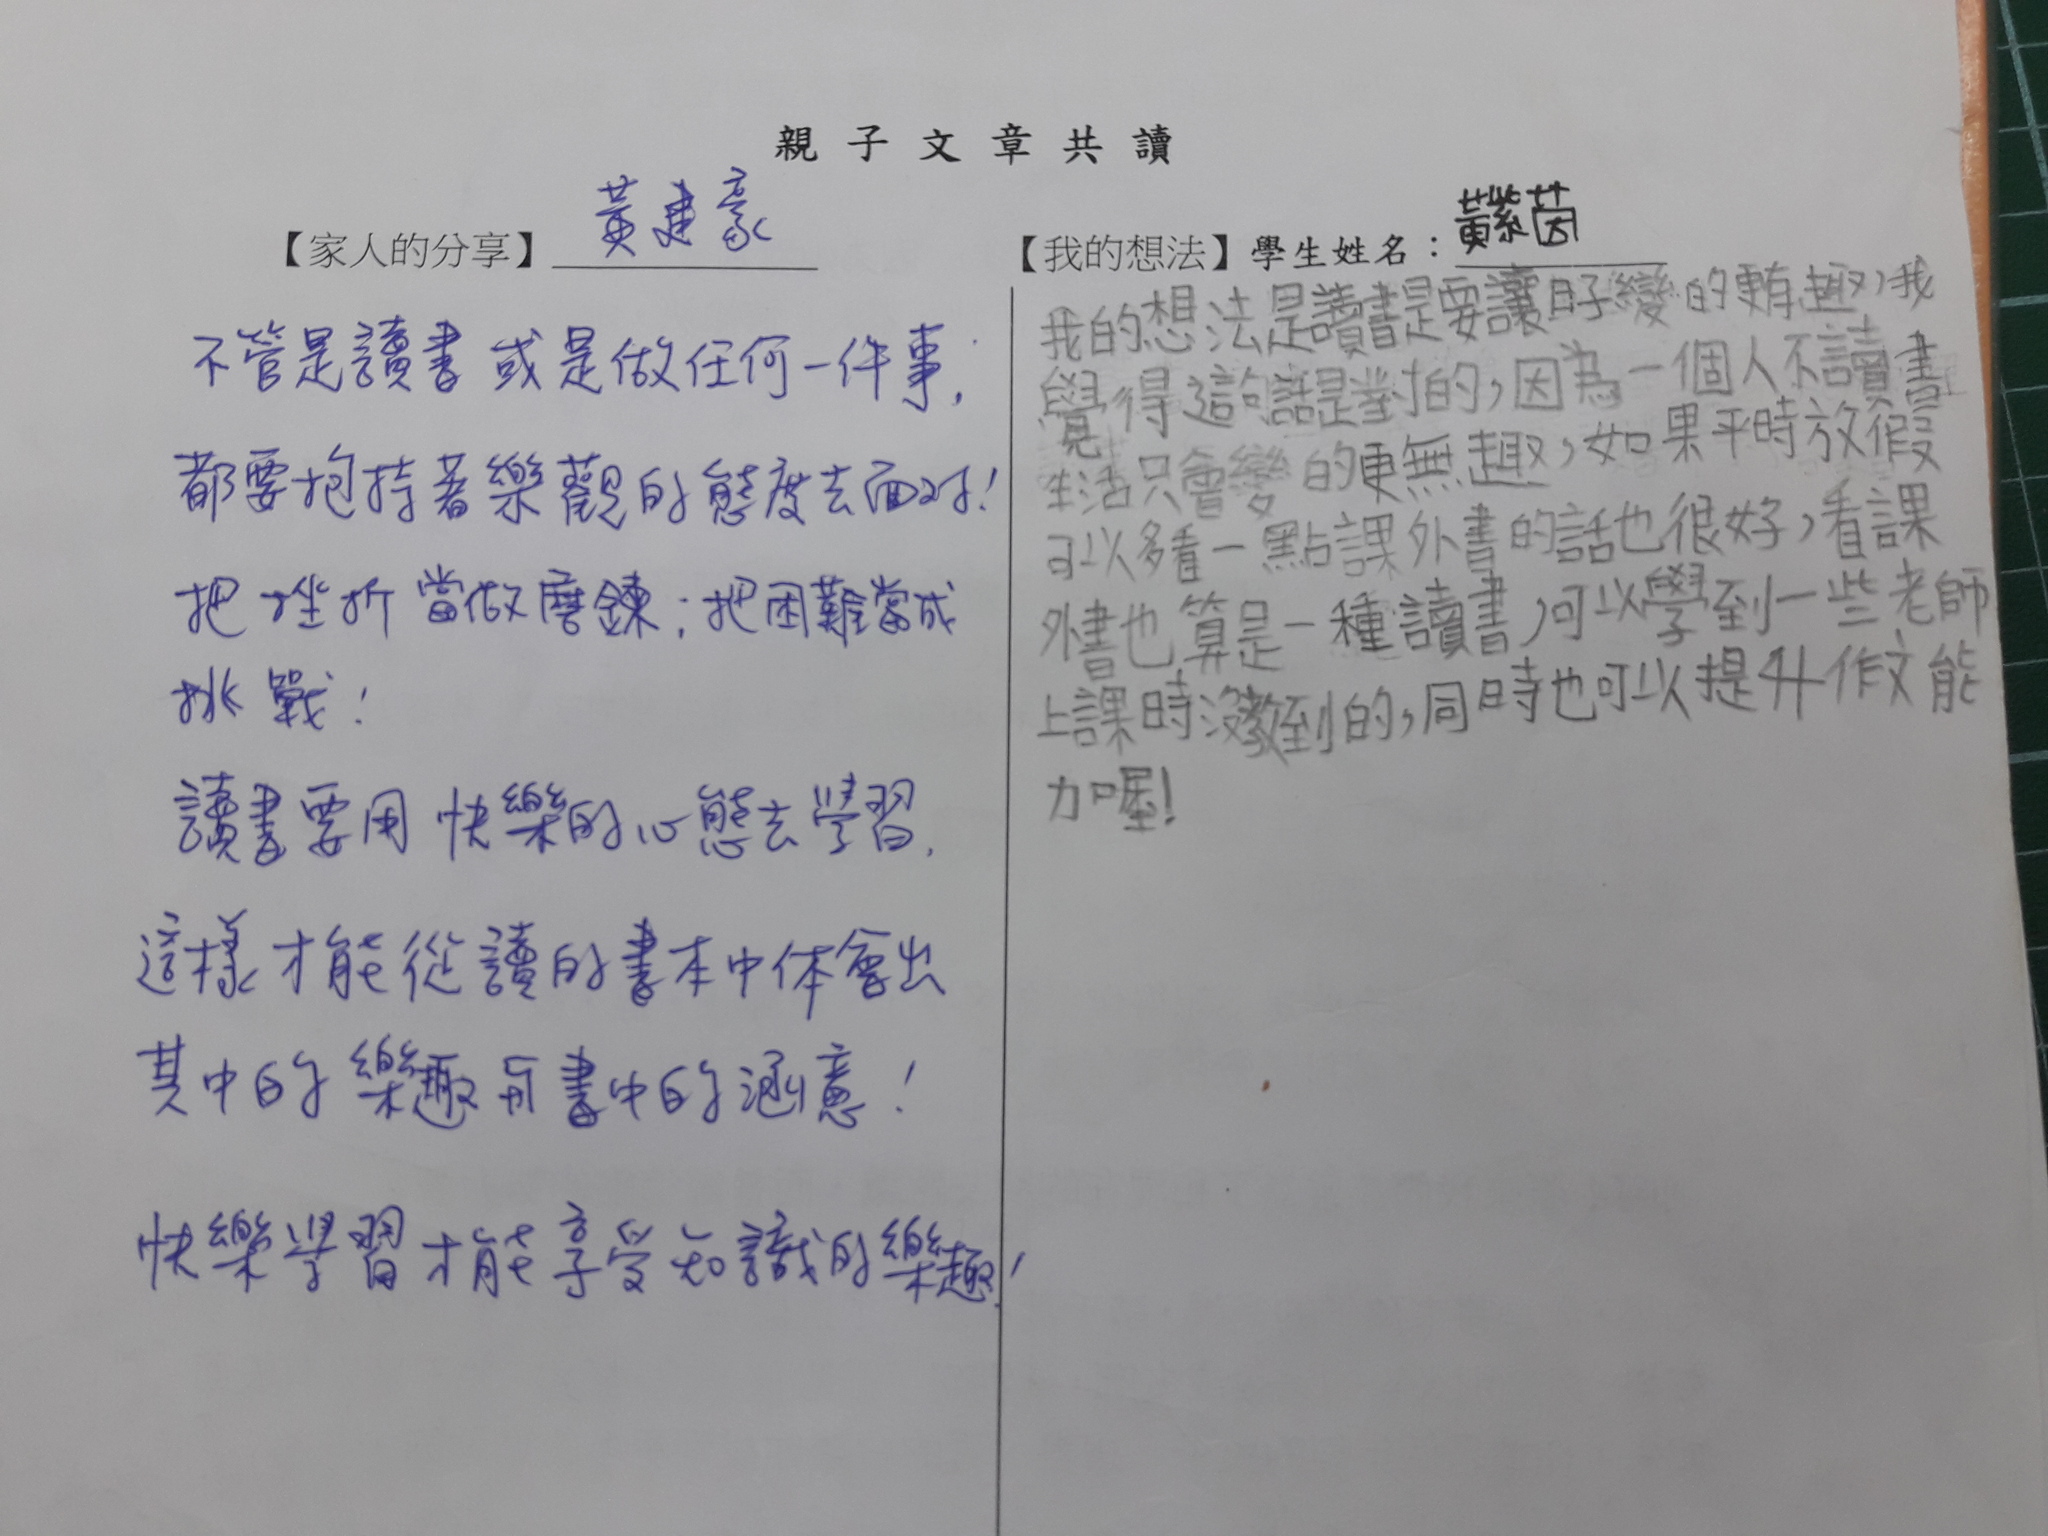 親子文章共讀
【家人的分享】黃建豪
不管是讀書或是做任何一件事,
都要抱持著樂觀的態度去面对!
把挫折當做磨鍊;把困難當成
挑戰!
讀書要用快樂的心態去學習,
這樣才能從讀的書本中体會出
其中的樂趣和書中的涵意!
快樂學習才能享受知識的樂趣!
【我的想法】學生姓名:黃紫茵
我的想法是讀書是要讓日子變的更有趣,我
覺得這句話是對的,因為一個人不讀書
生活只會變的更無趣,如果平時放假
可以多看一點課外書的話也很好,看課
外書也算是一種讀書,可以學到一些老師
上課時沒教到的,同時也可以提升作文能
力喔!